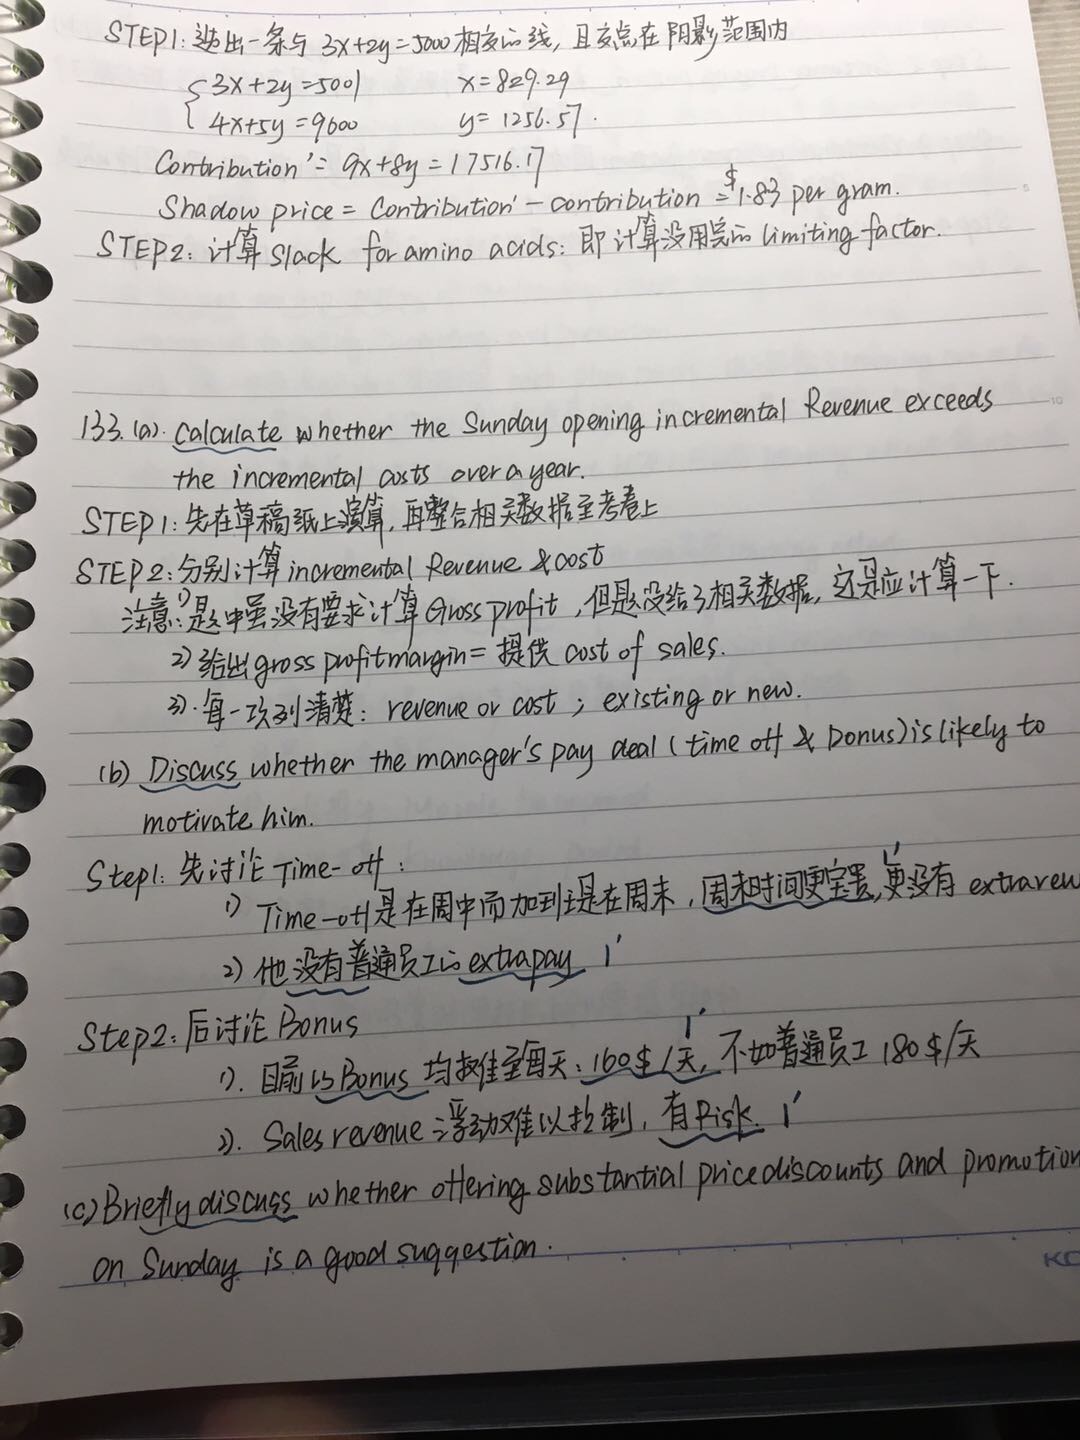 STEP1: 选出一条与 3x+2y=5000相交的线, 且交点在阴影范围内
{3x+2y=5001 x=829.29
4x+5y=9600 y=1256.57.
Contribution'= 9x+8y=17516.17
Shadow price = Contribution' - contribution = $1.83 per gram.
STEP2: 计算 Slack for amino acids: 即计算没用完的 limiting factor.
133.(a). Calculate whether the Sunday opening incremental Revenue exceeds
the incremental costs over a year.
STEP1: 先在草稿纸上演算, 再整合相关数据至考卷上
STEP2: 分别计算 incremental Revenue & cost
注意: 1) 题中虽没有要求计算 Gross profit, 但是没给了相关数据, 还是应计算一下.
2) 给出 gross profit margin = 提供 cost of sales.
3). 每一项列清楚: revenue or cost ; existing or new.
(b) Discuss whether the manager's pay deal (time off & bonus) is likely to
motivate him.
Step1: 先讨论 Time-off :
1) Time-off 是在周中而加班是在周末, 周末时间更宝贵, 1' 更没有 extra rew
2) 他没有普通员工的 extra pay 1'
Step2: 后讨论 Bonus
1). 目前的 Bonus 均摊至每天: 160$/天, 1' 不如普通员工 180$/天
2). Sales revenue 浮动难以控制, 有 Risk. 1'
(c) Briefly discuss whether offering substantial price discounts and promotion
on Sunday is a good suggestion.